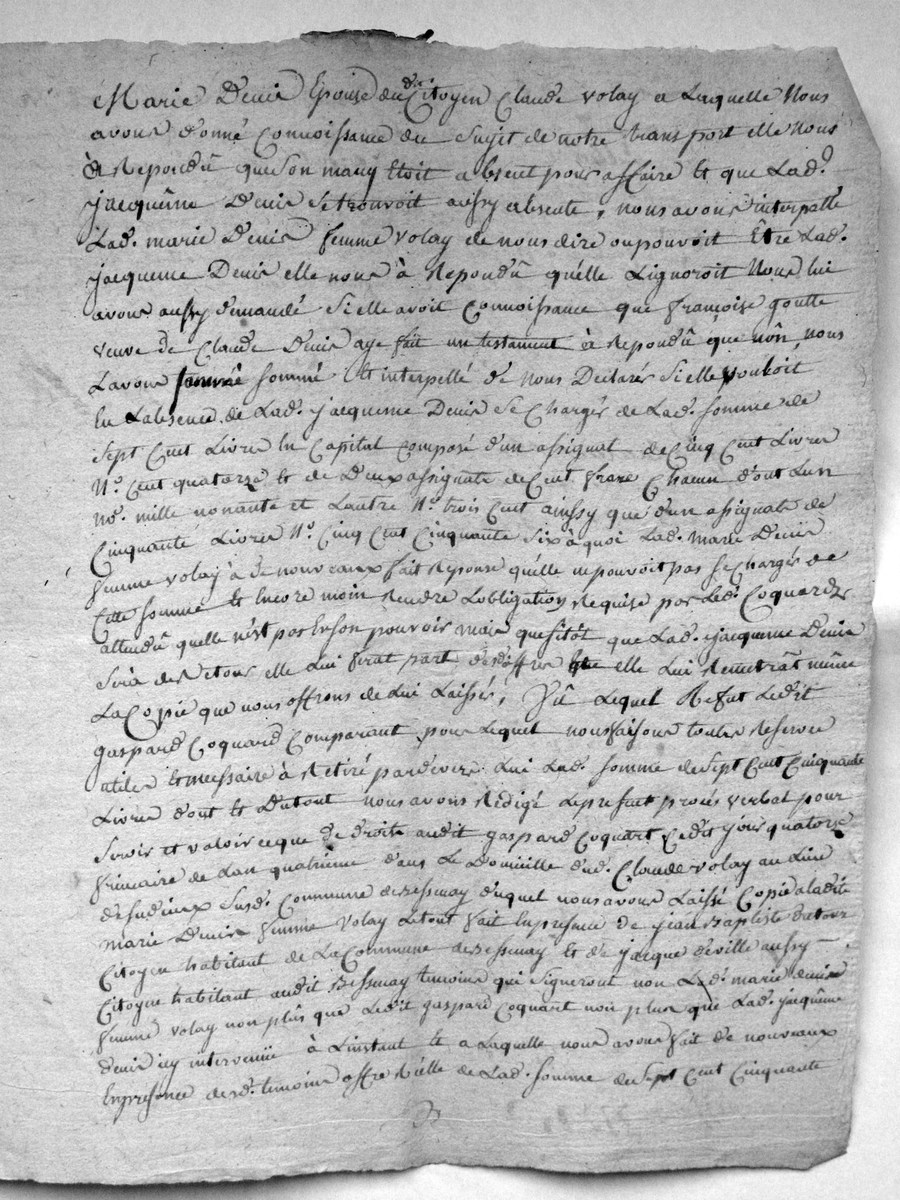 Marie Denis Epouse du dit Citoyen Claude Volay a Laquelle Nous
avons donné Connoissance du Sujet de notre transport elle Nous
à Repondû que Son mary Etoit absent pour affaire Et que Lad.
jacquême Denis Se trouvoit aussy absente, nous avons interpellé
Lad. marie Denis femme Volay de nous dire ou pouvoit Être Lad.
jacqueme Denis elle nous à Repondû qu'elle Lignoroit Nous lui
avons aussy demandé Si elle avoit Connoissance que françoise goutte
veuve de Claude Denis aye fait un testament à Repondû que nôn, nous
Lavons sommé Et interpellé de Nous Declarés Si elle vouloit
En Labsence de Lad. jacqueme Denis Se Chargés de Lad. Somme de
Sept Cent Livres En Capital Composé d'un assignat de Cinq Cent Livres
N.o Cent quatorze Et de Deux assignats de Cent franc Chacun d'ont Lun
No. mille nonante et Lautre N.o trois Cent ainssy que d'un assignats de
Cinquante Livres N.o Cinq Cent Cinquante Six à quoi Lad. Marie Denis
femme Volay à de nouveaux fait Reponse qu'elle ne pouvoit pas Se Chargés de
Cette Somme Et Encore moin Rendre Lobligation Requise par Led. Coquard
attendû quelle n'est pas En Son pouvoir mais que Sitôt que Lad. jacqueme Denis
Sera de Retour elle Lui feroit part Des offres que elle Lui Remettrât même
La Copie que nous offrons de Lui Laisser, Vû Lequel Refut Ledit
gaspard Coquard Comparant pour Lequel nous faisons toutes Reserves
utiles Et nessaire à Retiré pardevers Lui Lad. Somme de Sept Cent Cinquante
Livres d'ont Et Du tout nous avons Redigé Le present procés verbal pour
Servir et valoir ce que de droit audit gaspard Coquart Cedit jour quatorze
frimaire de Lan quatrieme d'ans Le Domicille dud. Claude Volay au Lieu
Susd. Commune de Bessenay duquel nous avons Laissé Copie a ladite
Marie Denis femme Volay Le tout fait En presence de jean Baptiste
Citoyen habitant de La Commune de Bessenay Et de jacque deville aussy
Citoyen habitant audit Bessenay temoins qui Signeront non Lad. marie denis
femme Volay non plûs que Ledit gaspard Coquart non plus que Lad. jacquême
denis icy intervenüe à Linstant Et a Laquelle nous avons fait de nouveaux
En presence desd. temoins offre Réelle de Lad. Somme de Sept Cent Cinquante